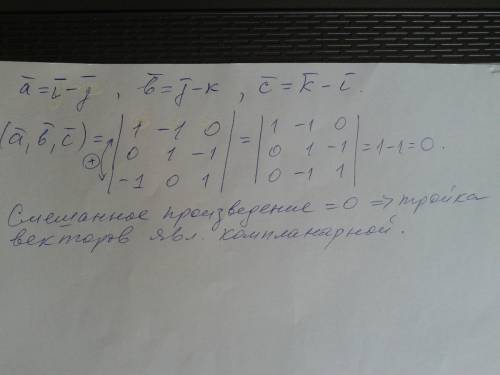 a̅ = i̅ - j̅ , b̅ = j̅ - к , c̅ = k̅ - i̅.
(a̅, b̅, c̅) = | 1 -1 0 | = | 1 -1 0 | = 1-1 = 0.
⊕ | 0 1 -1 | | 0 1 -1 |
| -1 0 1 | | 0 -1 1 |
Смешанное произведение = 0 => тройка
векторов явл. компланарной.